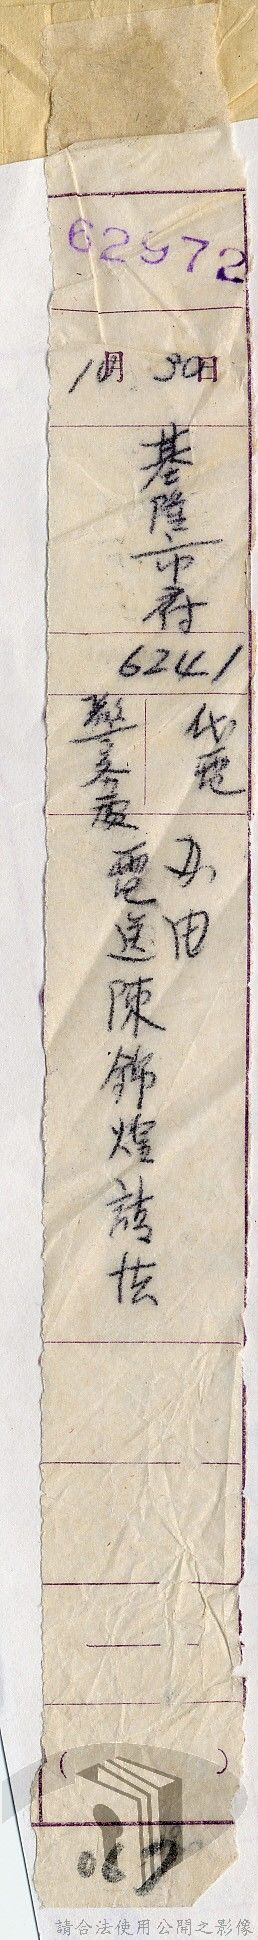 62972
10月30日
基隆市府
6241
代電
警美處
事由
電送陳錦煌請法
067
請合法使用公開之影像